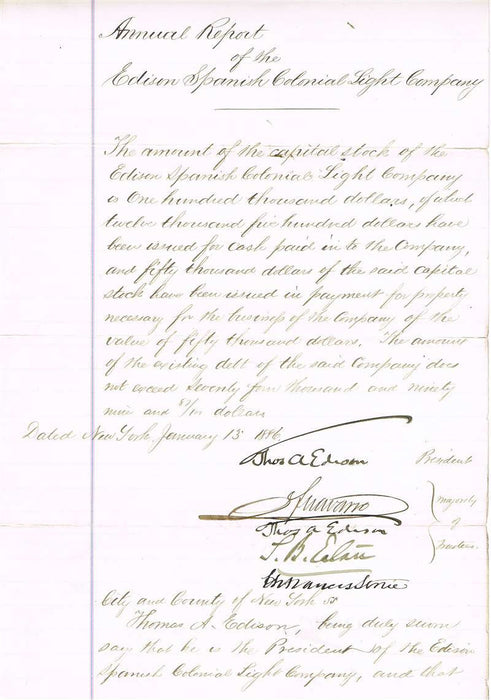 Annual Report
of the
Edison Spanish Colonial Light Company
The amount of the capital stock of the
Edison Spanish Colonial Light Company
is One hundred thousand dollars, of which
twelve thousand five hundred dollars have
been issued for cash paid in to the Company,
and fifty thousand dollars of the said capital
stock have been issued in payment for property
necessary for the business of the Company of the
value of fifty thousand dollars. The amount
of the existing debt of the said Company does
not exceed Seventy four thousand and ninety
nine and /100 dollars
Dated New York, January 15 1886
Thos A Edison President
J F Navarro
Thos A Edison
S. B. Eaton
majority
of
trustees.
City and County of New York ss
Thomas A. Edison, being duly sworn
say that he is the President of the Edison
Spanish Colonial Light Company, and that